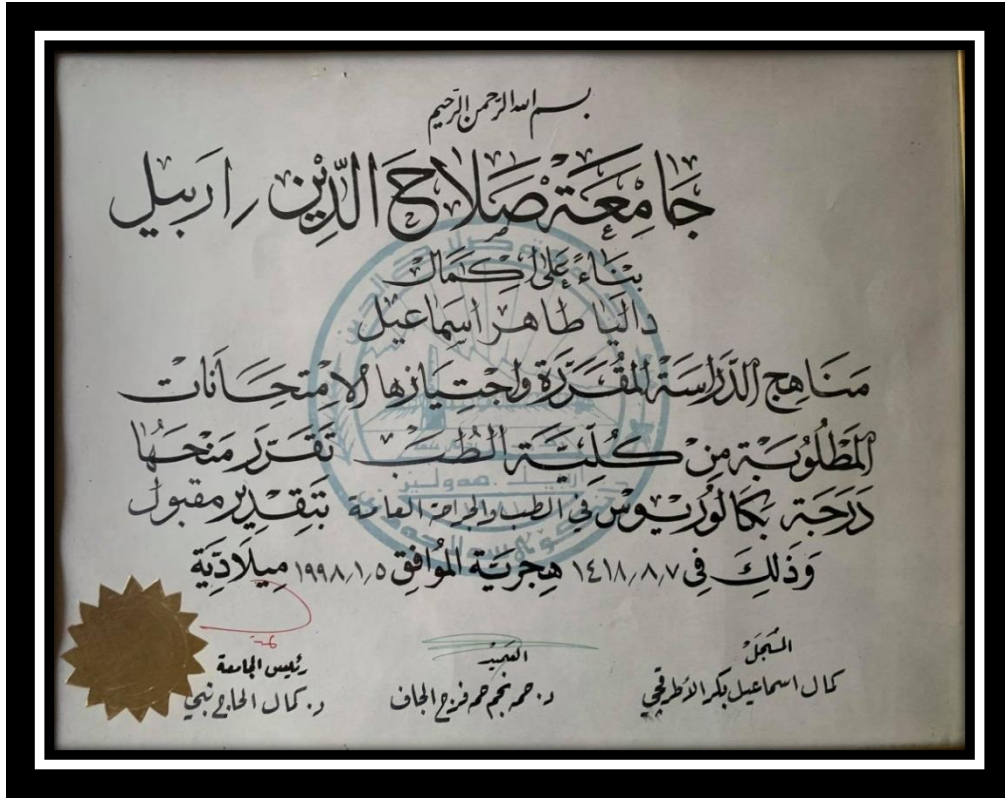 بسم الله الرحمن الرحيم
جامعة صلاح الدين / اربيل
بناءً على اكمال
داليا طاهر اسماعيل
مناهج الدراسة المقررة واجتيازها الامتحانات
المطلوبة من كلية الطب تقرر منحها
درجة بكالوريوس في الطب والجراحة العامة بتقدير مقبول
وذلك في ١٤١٨/٨/٧ هجرية الموافق ١٩٩٨/١/٥ ميلادية
المسجل
كمال اسماعيل بكر
العميد
د. حمه نجم حمه فرج الجاف
رئيس الجامعة
د. كمال الحاج نبي